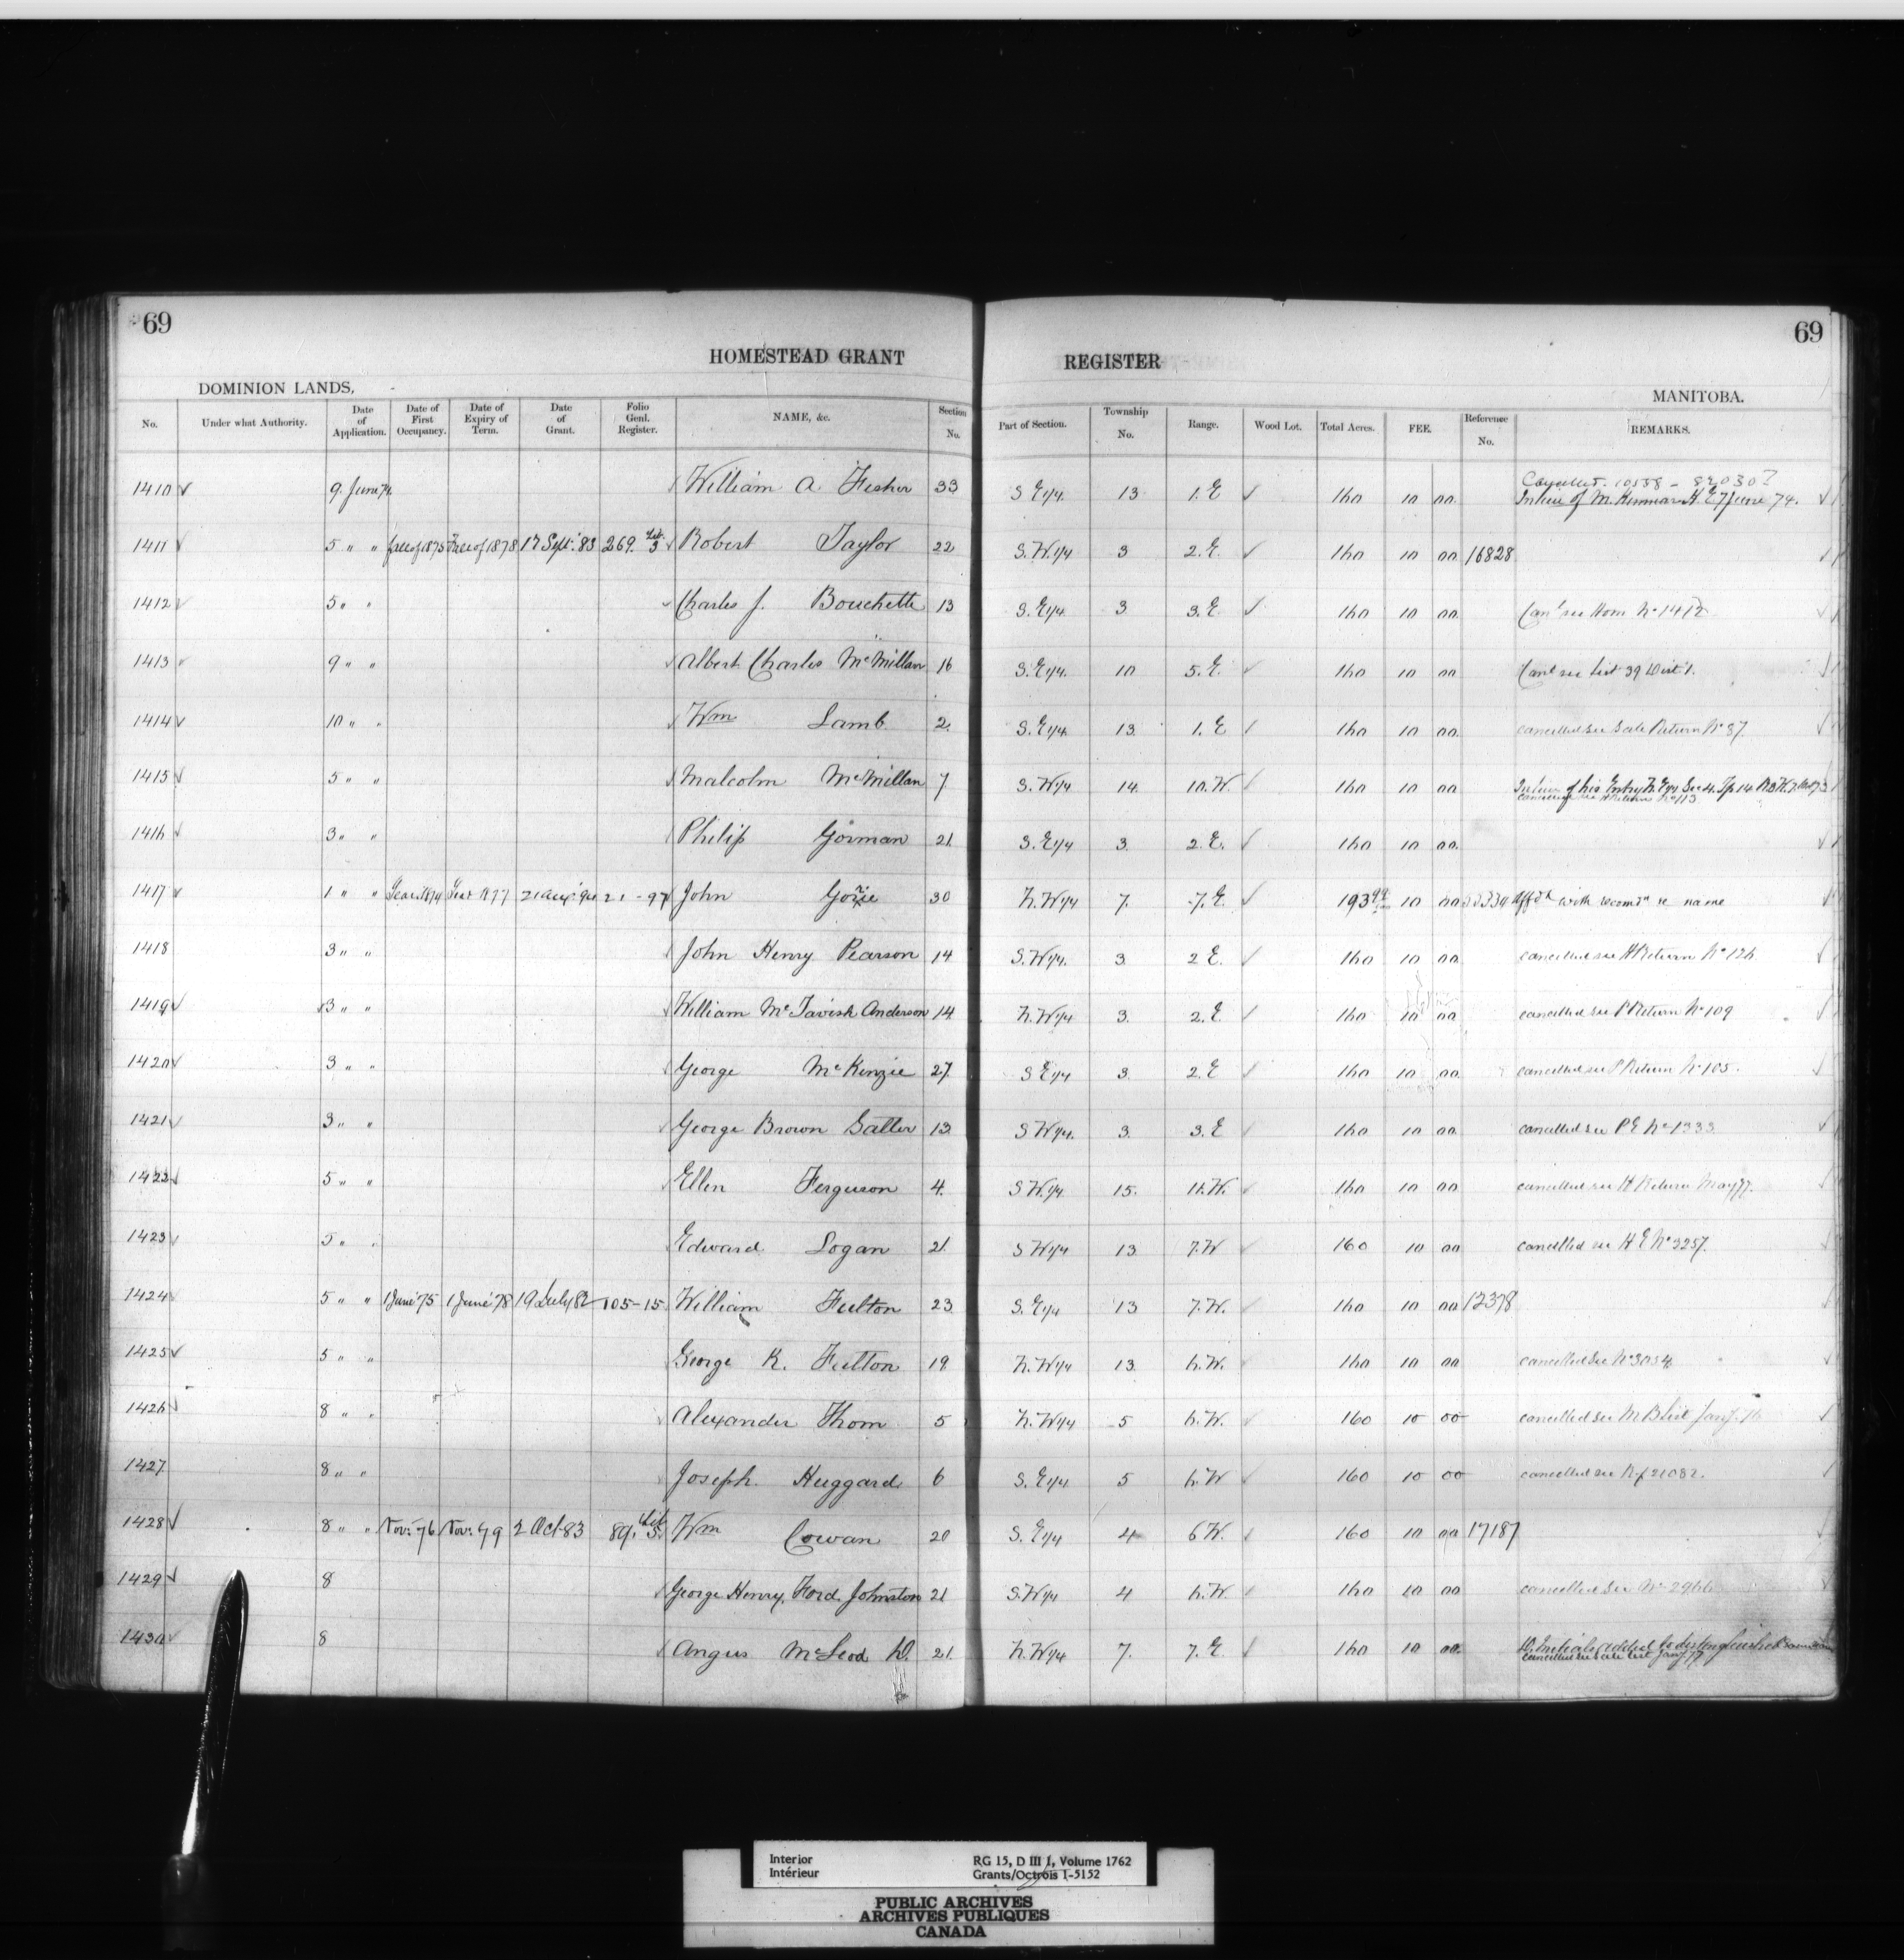 69
69
HOMESTEAD GRANT REGISTER
DOMINION LANDS,
MANITOBA.
No. Under what Authority. Date of Application. Date of First Occupancy. Date of Expiry of Term. Date of Grant. Folio Genl. Register. NAME, &c. Section No. Part of Section. Township No. Range. Wood Lot. Total Acres. FEE. Reference No. REMARKS.
1410 ✓ 9 June 74 William A. Fisher 33 S E 1/4 13 1. E ✓ 160 10 00 In lieu of H E 7 June 74.
1411 ✓ 5 " " Fall of 1875 Fall of 1878 17 Sept. 83 269. Lib. 3 Robert Taylor 22 S. W. 1/4 3 2. E. ✓ 160 10 00 16828
1412 ✓ 5 " " Charles J. Bouchette 13 S. E 1/4 3 3. E ✓ 160 10 00 Canl see Hom No 1412
1413 9 " " Albert Charles McMillan 16 S. E 1/4. 10 5. E ✓ 160 10 00 Canl see List 39 Dist 1.
1414 ✓ 10 " " Wm Lamb 2. S. E 1/4 13 1. E ✓ 160 10 00 cancelled see Sale Return No 87
1415 ✓ 5 " " Malcolm McMillan 7 S. W 1/4 14 10. W. ✓ 160 10 00 In lieu of his Entry N. E 1/4 Sec 4. Tp 14 R3 W.
cancelled see H Return No 113
1416 ✓ 3 " " Philip Gorman 21 S. E 1/4 3 2 E. ✓ 160 10 00
1417 ✓ 1 " " Year 1874 Year 1877 21 Aug 94 21 - 97 John 30 N. W 1/4 7. 7. E. ✓ 193 10 00 Affdt with recomdn re name
1418 3 " " John Henry Pearson 14 S. W 1/4. 3 2 E. ✓ 160 10 00 cancelled see H Return No 126
1419 ✓ 3 " " William McTavish Anderson 14 N. W 1/4 3. 2. E ✓ 160 10 00 cancelled see P Return No 109
1420 ✓ 3 " " George McKenzie 27 S E 1/4 3 2. E ✓ 160 10 00 cancelled see P Return No 105.
1421 ✓ 3 " " George Brown Salter 13 S W 1/4. 3. 3. E ✓ 160 10 00 cancelled see P E No 1333
1422 ✓ 5 " " Ellen Ferguson 4. S W. 1/4 15. 11. W. ✓ 160 10 00 cancelled see H Return May 77.
1423 ✓ 5 " " Edward Logan 21. S W 1/4 13 7. W ✓ 160 10 00 cancelled see H E No 3257.
1424 5 " " 1 June 75 1 June 78 19 July 82 105 - 15 William Fulton 23 S. E 1/4 13 7. W. ✓ 160 10 00 12378
1425 ✓ 5 " " George K. Fulton 19 N. W 1/4 13. 6. W. ✓ 160 10 00 cancelled see No 3054
1426 ✓ 8 " " Alexander Thom 5 N. W 1/4 5 6. W. ✓ 160 10 00 cancelled see M B List Jany. 76
1427 8 " " Joseph Huggard 6 S. E 1/4 5 6. W ✓ 160 10 00 cancelled see Rf 21082.
1428 ✓ 8 " " Nov. 76 Nov. 79 2 Oct 83 89. Lib 3. Wm Cowan 20 S. E 1/4 4 6 W. ✓ 160 10 00 17187
1429 ✓ 8 George Henry Ford Johnston 21 S. W 1/4 4 6. W. ✓ 160 10 00 cancelled see No 2966
1430 ✓ 8 Angus McLeod D. 21. N. W 1/4 7. 7. E. ✓ 160 10 00 D. Initials added to distinguish
cancelled see Sale List Jany 77
Interior
Intérieur
RG 15, D III 1, Volume 1762
Grants/Octrois 1-5152
PUBLIC ARCHIVES
ARCHIVES PUBLIQUES
CANADA